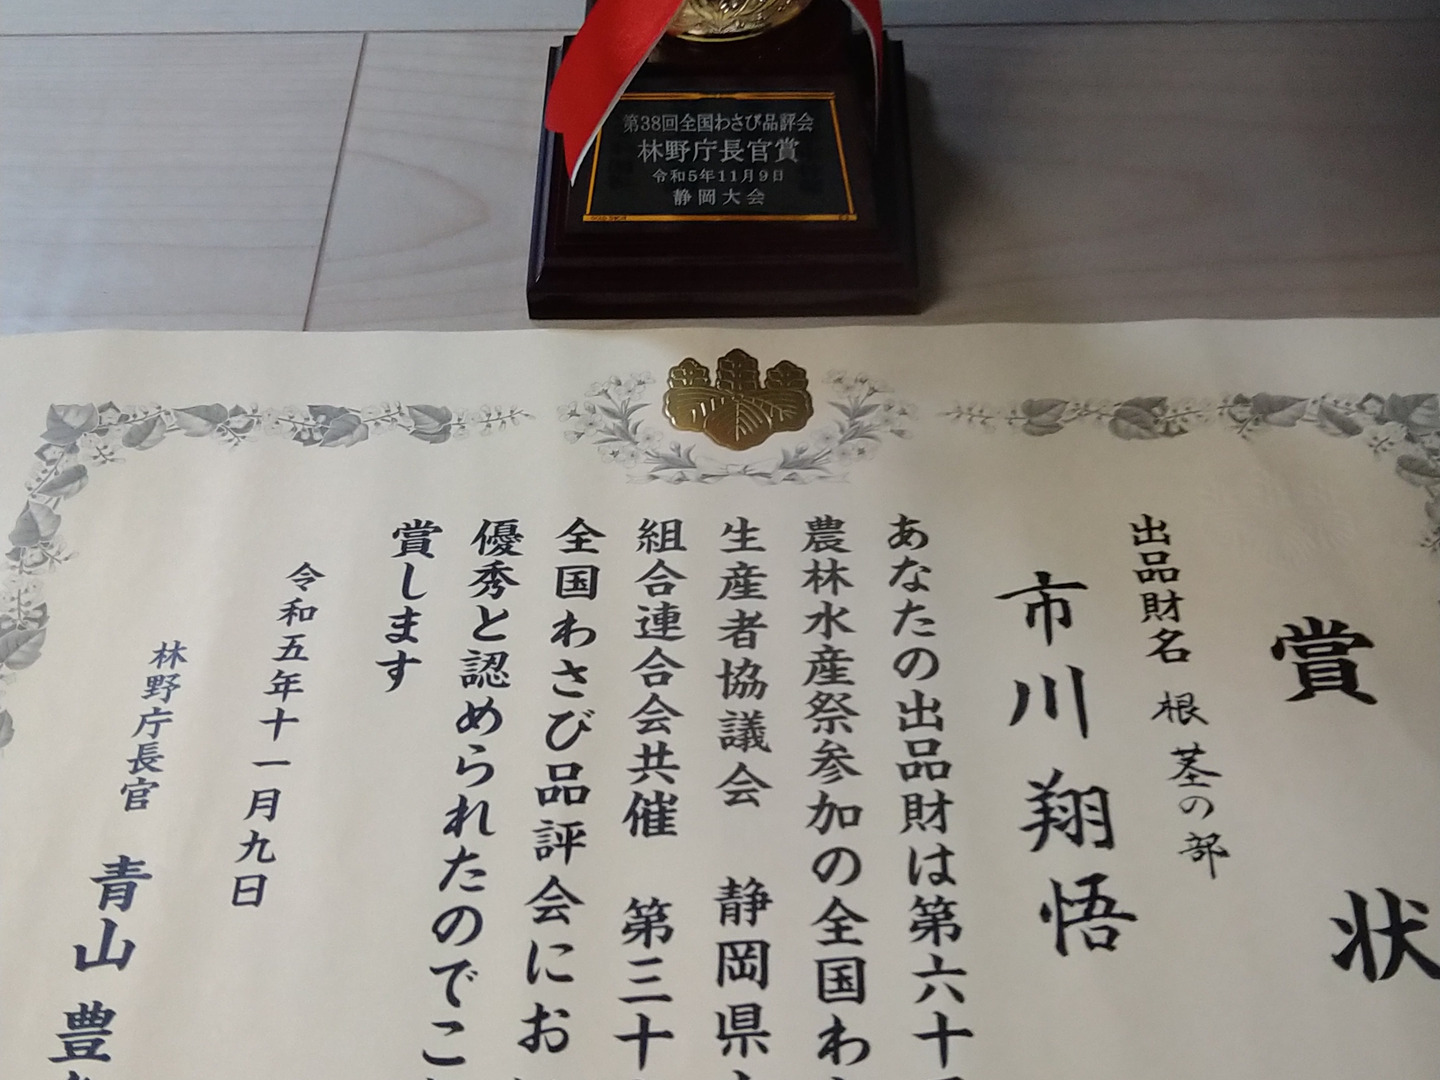 第38回全国わさび品評会
林野庁長官賞
令和5年11月9日
静岡大会
賞状
出品財名 根茎の部
市川翔悟
あなたの出品財は第六十
農林水産祭参加の全国わ
生産者協議会 静岡県
組合連合会共催 第三十
全国わさび品評会にお
優秀と認められたのでこ
賞します
令和五年十一月九日
林野庁長官 青山豊